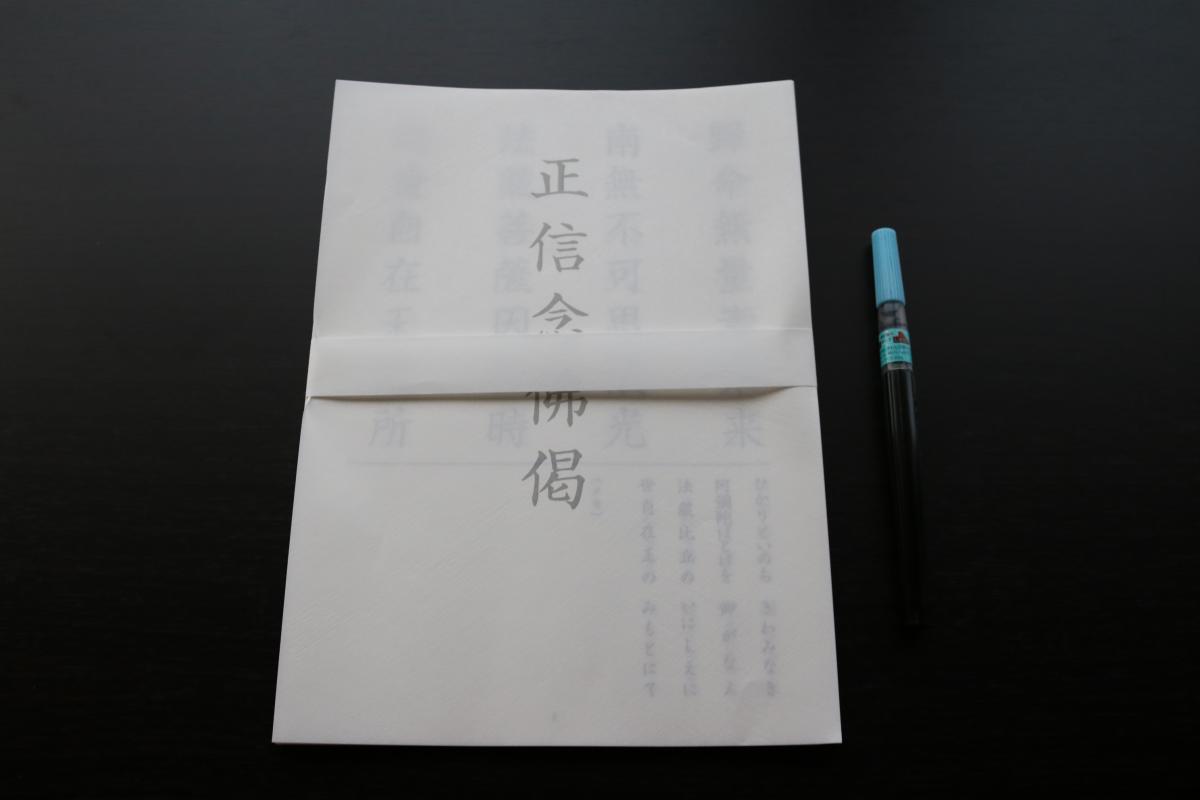 正信念佛偈
命無量 来
南無不可思 光
法 菩薩因 時
自在王 所
ひかりといのち きわみなき
阿弥陀ほとけを 仰がなん
法蔵比丘の いにしえに
世自在王の みもとにて